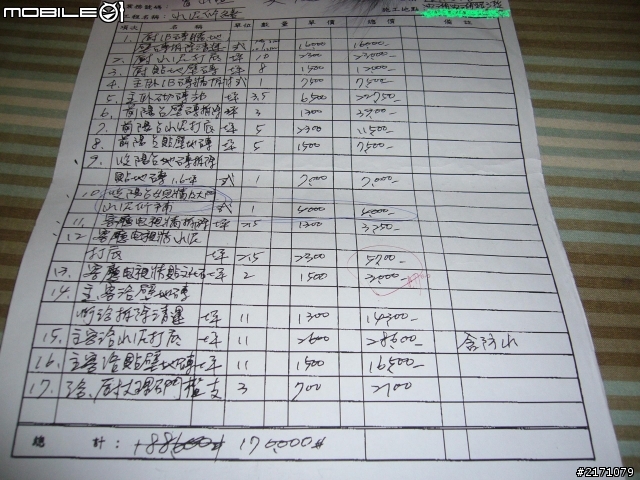 MOBILE01
工程名稱：水泥工程
項次 單位 數量 單價 總價 備註
1. 廚旧磚牆地
壁磚拆除清運 式 16000 16000-
2. 廚水泥打底 坪 10 2300 23000-
3. 廚貼地壁磚 坪 8 1500 12000-
4. 主臥旧磚牆拆除 式 1 7500 7500-
5. 主臥砌磚 坪 3.5 6500 22750-
6. 前陽台壁磚拆除 坪 3 1300 3900-
7. 前陽台水泥打底 坪 5 2300 11500-
8. 前陽台貼壁地磚 坪 5 1500 7500-
9. 後陽台地磚拆除
貼地磚1.6坪 式 1 7000- 7000-
式 1 4000 4000-
11. 客廳电視牆拆除 坪 2.5 1300 3250-
12. 客廳电視牆水泥
打底 坪 2.5 2300 5700-
13. 客廳电視牆貼文化石 坪 2 1500 3000-
14. 主.客浴壁地磚
拆除清運 坪 11 1300 14300-
15. 主客浴水泥打底 坪 11 2600 28600- 含防水
16. 主客浴貼壁地磚 坪 11 1500 16500-
17. 浴、廚 門檻 支 3 700 2100
總計： 170,000#
#2171079